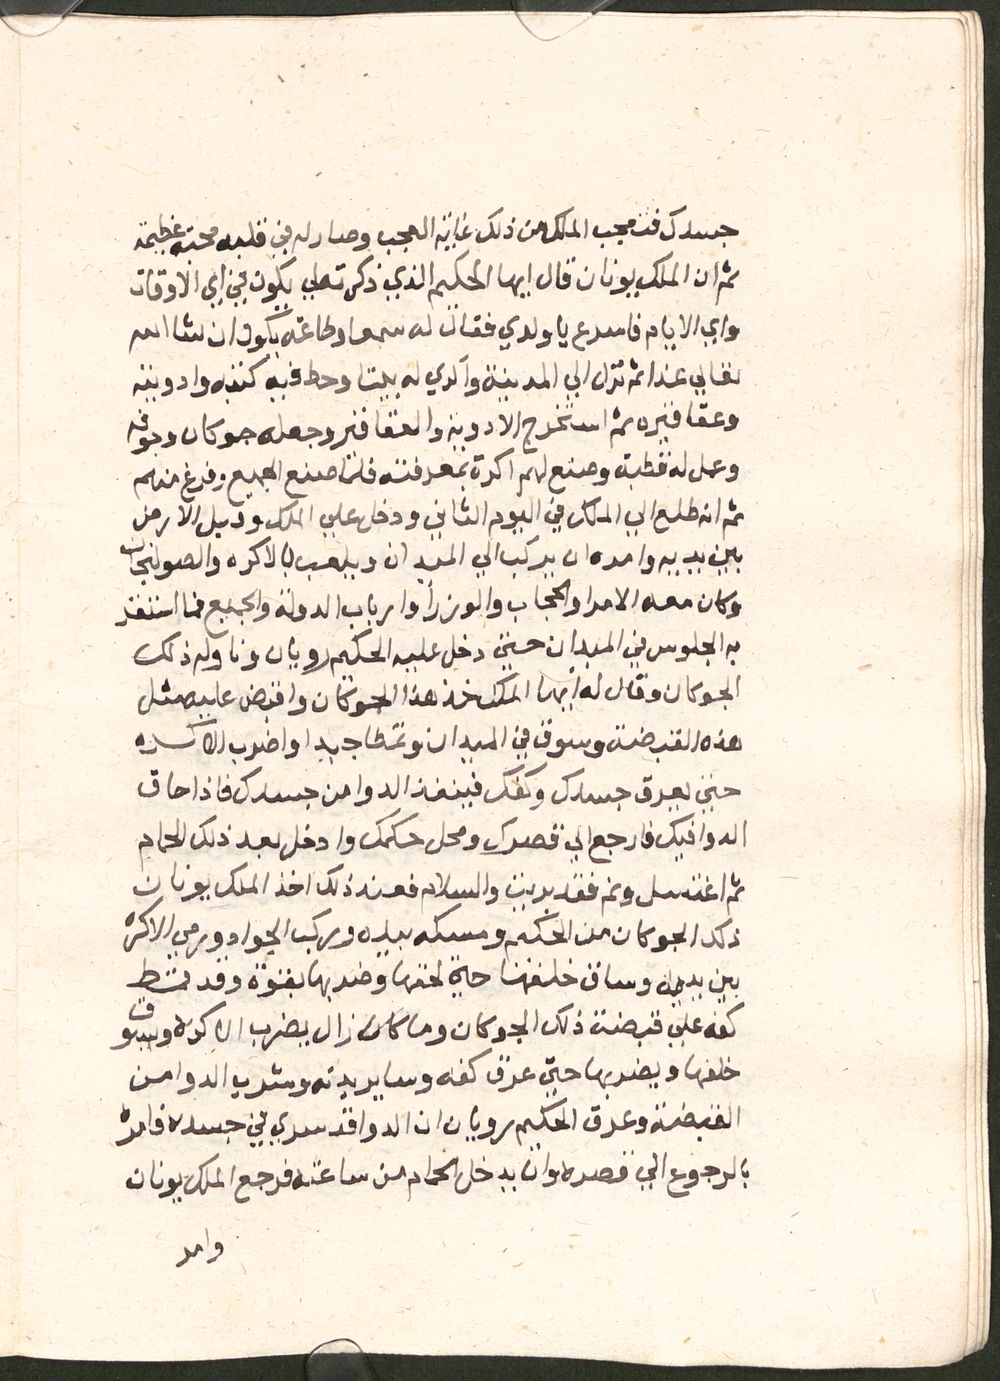 جسدك فتعجب الملك من ذلك غاية العجب وصار له في قلبه محبة عظيمة
ثم ان الملك يونان قال ايها الحكيم الذي ذكرته لي يكون في اي الاوقات
واي الايام فاسرع يا ولدي فقال له سمعا وطاعة يكون ان شا الله
تعالي غدا ثم نزل الي المدينة واكري له بيتا وحط فيه كتبه وادويته
وعقاقيره ثم استخرج الادوية والعقاقير وجعله جوكان وجوفه
وعمل له قصبة وصنع لهم اكرة بمعرفته فلما صنع الجميع وفرغ منهم
ثم انه طلع الي الملك في اليوم الثاني ودخل علي الملك وقبل الارض
بين يديه وامره ان يركب الي الميدان ويلعب بالاكره والصولجان
وكان معه الامرا والحجاب والوزرا وارباب الدولة والجميع فما استقر
به الجلوس في الميدان حتي دخل عليه الحكيم رويان وناوله ذلك
الجوكان وقال له ايها الملك خذ هذا الجوكان واقبض عليه مثل
هذه القبضة وسوق في الميدان وتمطا جيدا واضرب الاكره
حتي يعرق جسدك وكفك فينفذ الدوا من جسدك فاذا حاق
الدوا فيك فارجع الي قصرك ومحل حكمك وادخل بعد ذلك الحمام
ثم اغتسل ونم فقد بريت والسلام فعند ذلك اخذ الملك يونان
ذلك الجوكان من الحكيم ومسكه بيده وركب الجواد ورمي الاكرة
بين يديه وساق خلفها حتي لحقها وضربها بقوة وقد
كفه علي قبضة ذلك الجوكان وما كان زال يضرب الاكره ويسوق
خلفها ويضربها حتي عرق كفه وساير بدنه وشرب الدوا من
القبضة وعرف الحكيم رويان ان الدوا قد سري في جسده فامره
بالرجوع الي قصره وان يدخل الحمام من ساعته فرجع الملك يونان
وامر